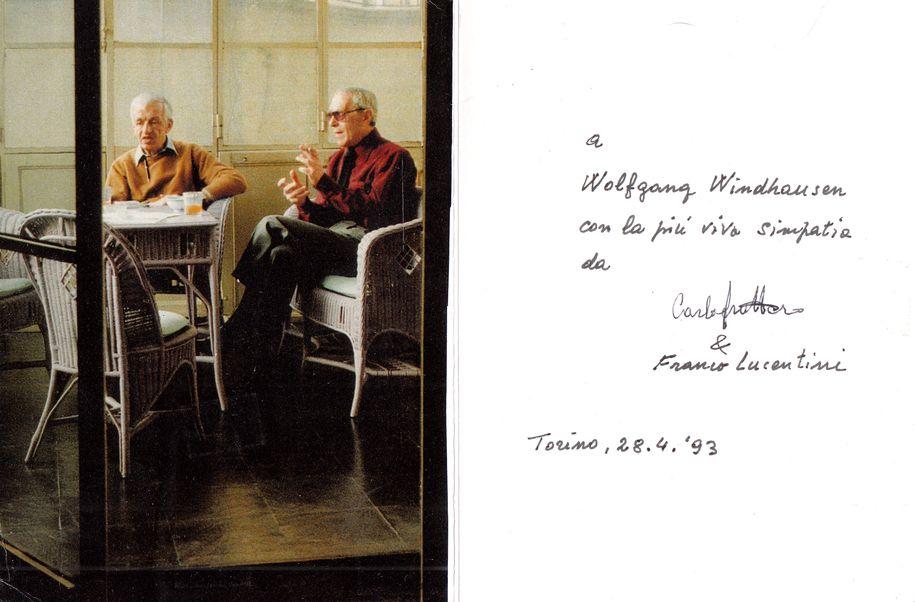 a
Wolfgang Windhausen
con la piú viva simpatia
da
Carlo Fruttero
&
Franco Lucentini
Torino, 28.4.'93